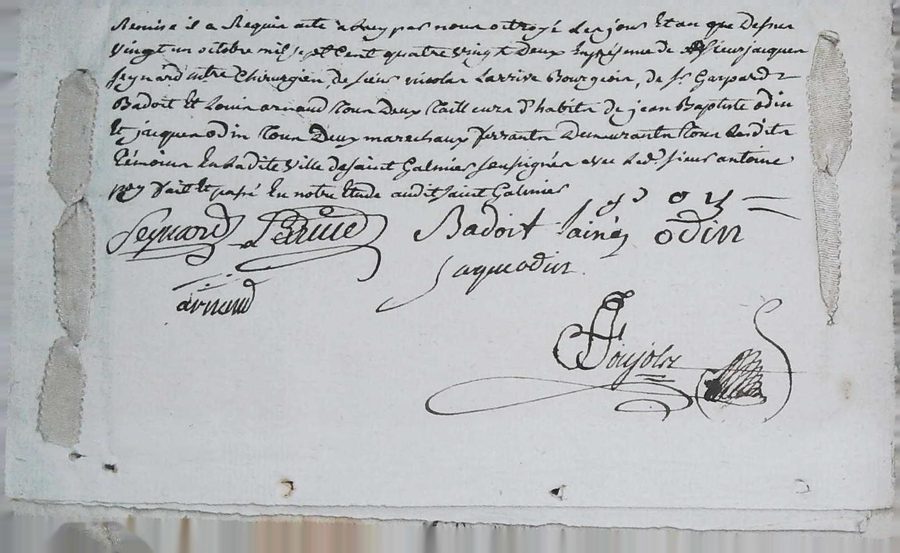 Remise il a Requis acte a luy par nous octroyé Les jour Et an que Dessus
vingt un octobre mil sept Cent quatre vingt Deux En presence de sieur jacques
Seynard mtre Chirurgien, de sieur nicolas Larrive Bourgeois, de Sr Gaspard
Badoit Et Louis arnaud tous Deux tailleurs d'habits de jean Baptiste odin
Et jacques odin tous Deux marechaux ferrants Demeurants tous Lesdits
témoins En Ladite ville de saint Galmier soussignés avec Led. sieur antoine
pey fait Et passé En notre Etude audit saint Galmier
Seynard Larrive Badoit Lainé odin
arnaud jaque odin
Poujolz